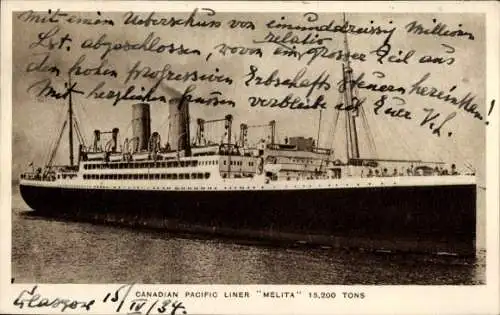 mit einem Ueberschuss von einunddreissig Millionen
relativ
Lst. abgeschlossen, wovon ein grosser Teil aus
den hohen progressiven Erbschaftssteuern hereinkam.
Mit herzlichen Grüssen verbleibe ich Euer
CANADIAN PACIFIC LINER "MELITA" 15,200 TONS
Glasgow 15/IV/34.